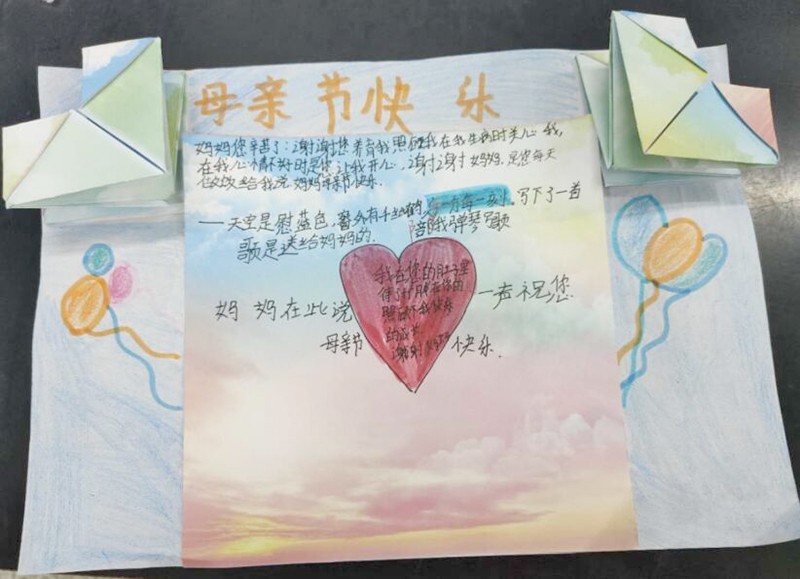 母亲节快乐
妈妈您辛苦了:谢谢您养育我照顾我在我生病时关心我,
在我心情不好时是您让我开心,谢谢妈妈,是您每天
给我说妈妈母亲节快乐.
——天空是慰蓝色,窗外有千纸鹤的每一分每一刻.写下了一首
陪我弹琴写歌
歌是送给妈妈的.
我在您的肚子里
待了
照顾下我快乐
的成长
谢谢妈妈
妈妈在此说 一声祝您
母亲节 快乐.